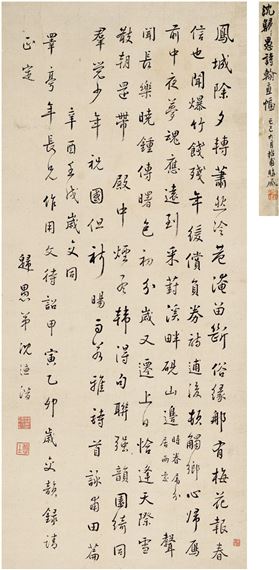 沈歸愚詩翰直幅
鳳城除夕轉蕭然冷巷淹留斷俗緣那有梅花報春
信也聞爆竹餞殘年緩償負券詩逋後頓觸鄉心歸雁
前中夜夢魂應遠到采葑溪畔硯山邊時眷屬分居兩處聲
聞長樂曉鍾傳曙色初分歲又遷上日恰逢天際雪
散朝還帶殿中煙孟韓得句聯強韻園綺同
羣覺少年祝國但祈暘雨若雅詩首詠甫田篇
辛酉壬戌歲交同
亭年長兄作用文待詔甲寅乙卯歲交韻錄請
正定
歸愚弟沈德潛